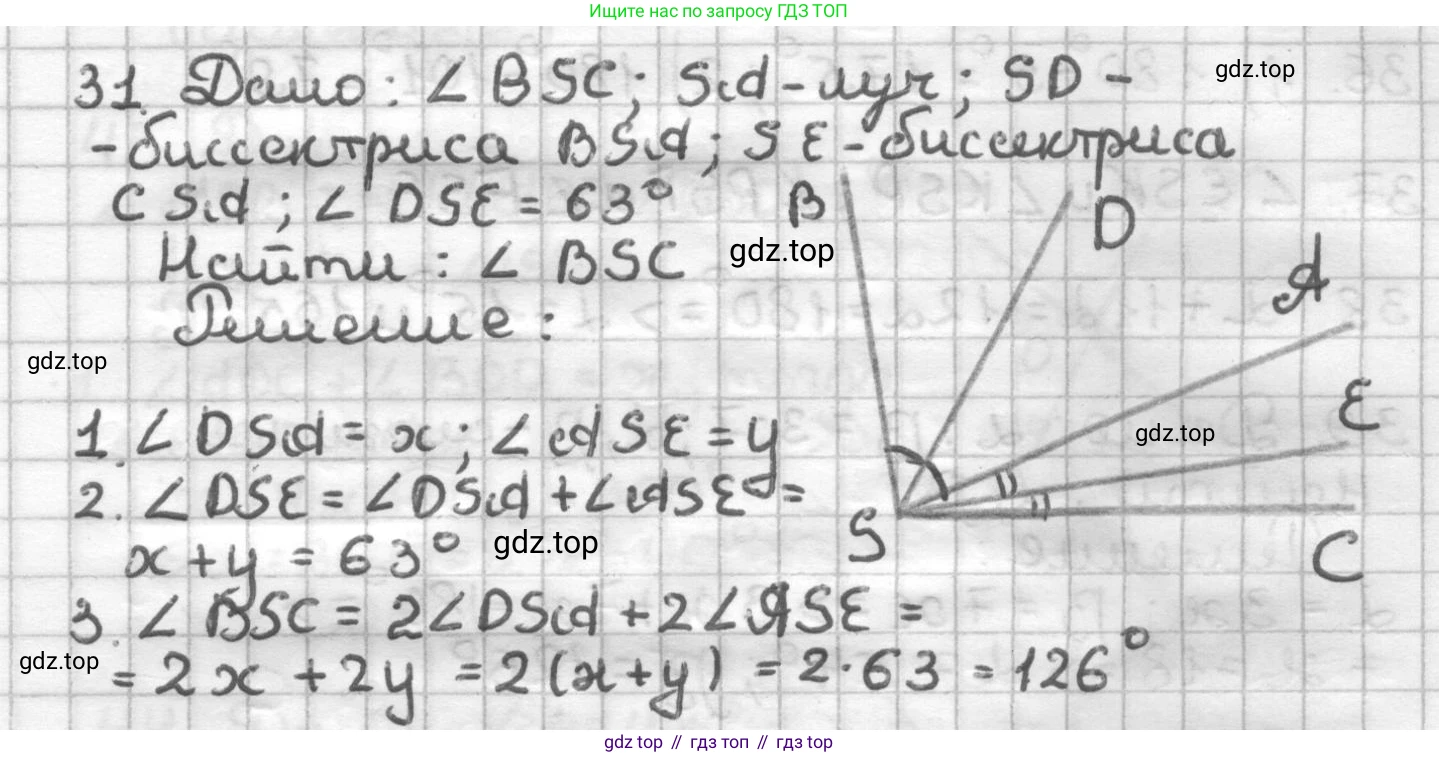 Ищите нас по запросу ГДЗ ТОП
31. Дано: ∠BSC; SA-луч; SD -
gdz.top
-биссектриса BSA; SE-биссектриса
CSA; ∠DSE = 63°
B
D
Найти: ∠BSC
gdz.top
A
Решение:
gdz.top
E
1. ∠DSA = x; ∠ASE = y
gdz.top
2. ∠DSE = ∠DSA + ∠ASE =
x + y = 63°
gdz.top
S
C
3. ∠BSC = 2∠DSA + 2∠ASE =
gdz.top
= 2x + 2y = 2(x+y) = 2·63 = 126°
gdz top // гдз топ // гдз top